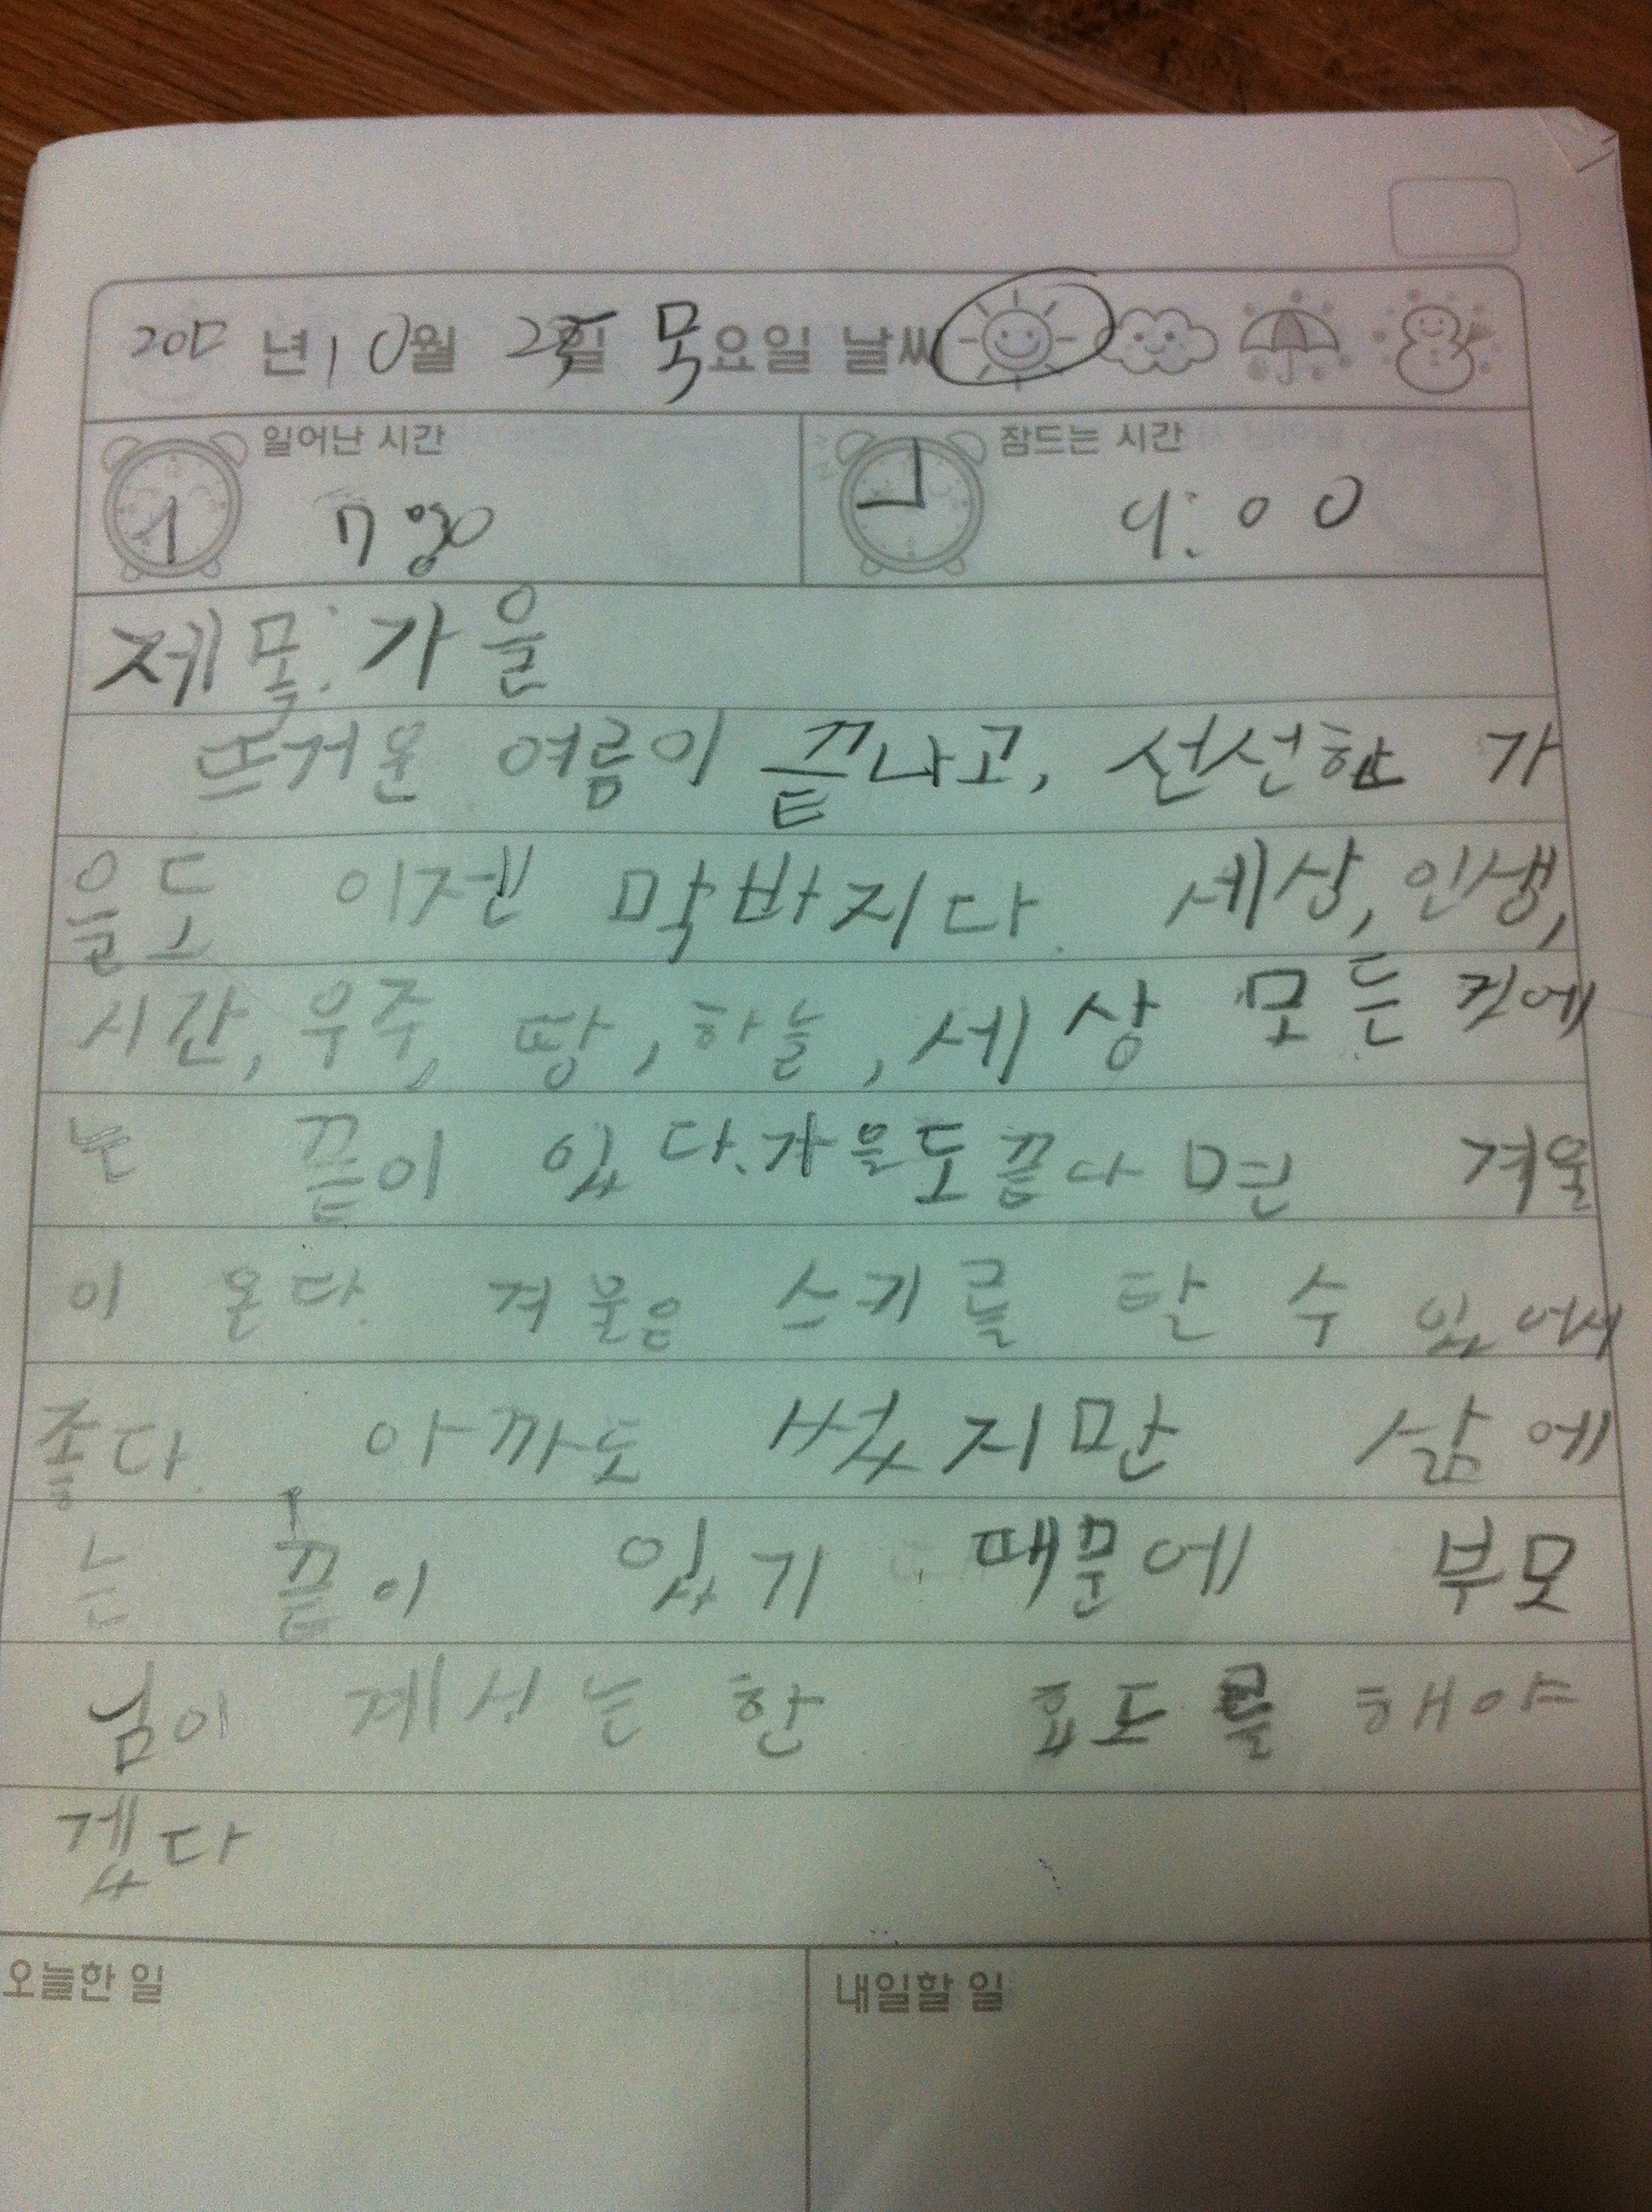 년 10월 일 목요일 날씨
일어난 시간 잠드는 시간
7:30 9:00
제목: 가을
뜨거운 여름이 끝나고, 선선한 가
을도 이젠 막바지다. 세상, 인생,
시간, 우주, 땅, 하늘, 세상 모든 것에
는 끝이 있다. 가을도 끝나면 겨울
이 온다. 겨울은 스키를 탈 수 있어서
좋다. 아까도 썼지만 삶에
는 끝이 있기 때문에 부모
님이 계시는 한 효도를 해야
겠다
오늘한 일 내일할 일